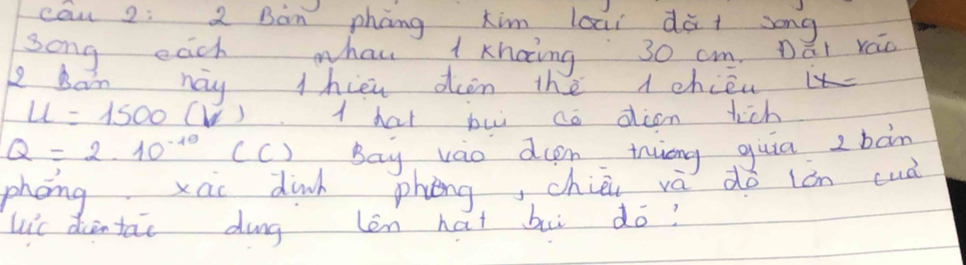 Câu 2: 2 Bản phẳng kim loại đặt song
song cách nhau 1 khoảng 30 cm. Đặt vào
2 bản này 1 hiệu điện thế 1 chiều
U = 1500 (V). 1 hạt bụi có điện tích
Q = 2.10⁻¹⁹ (C) Bay vào điện trường giữa 2 bản
phẳng. xác định phương, chiều và độ lớn của
lực điện tác dụng lên hạt bụi đó?